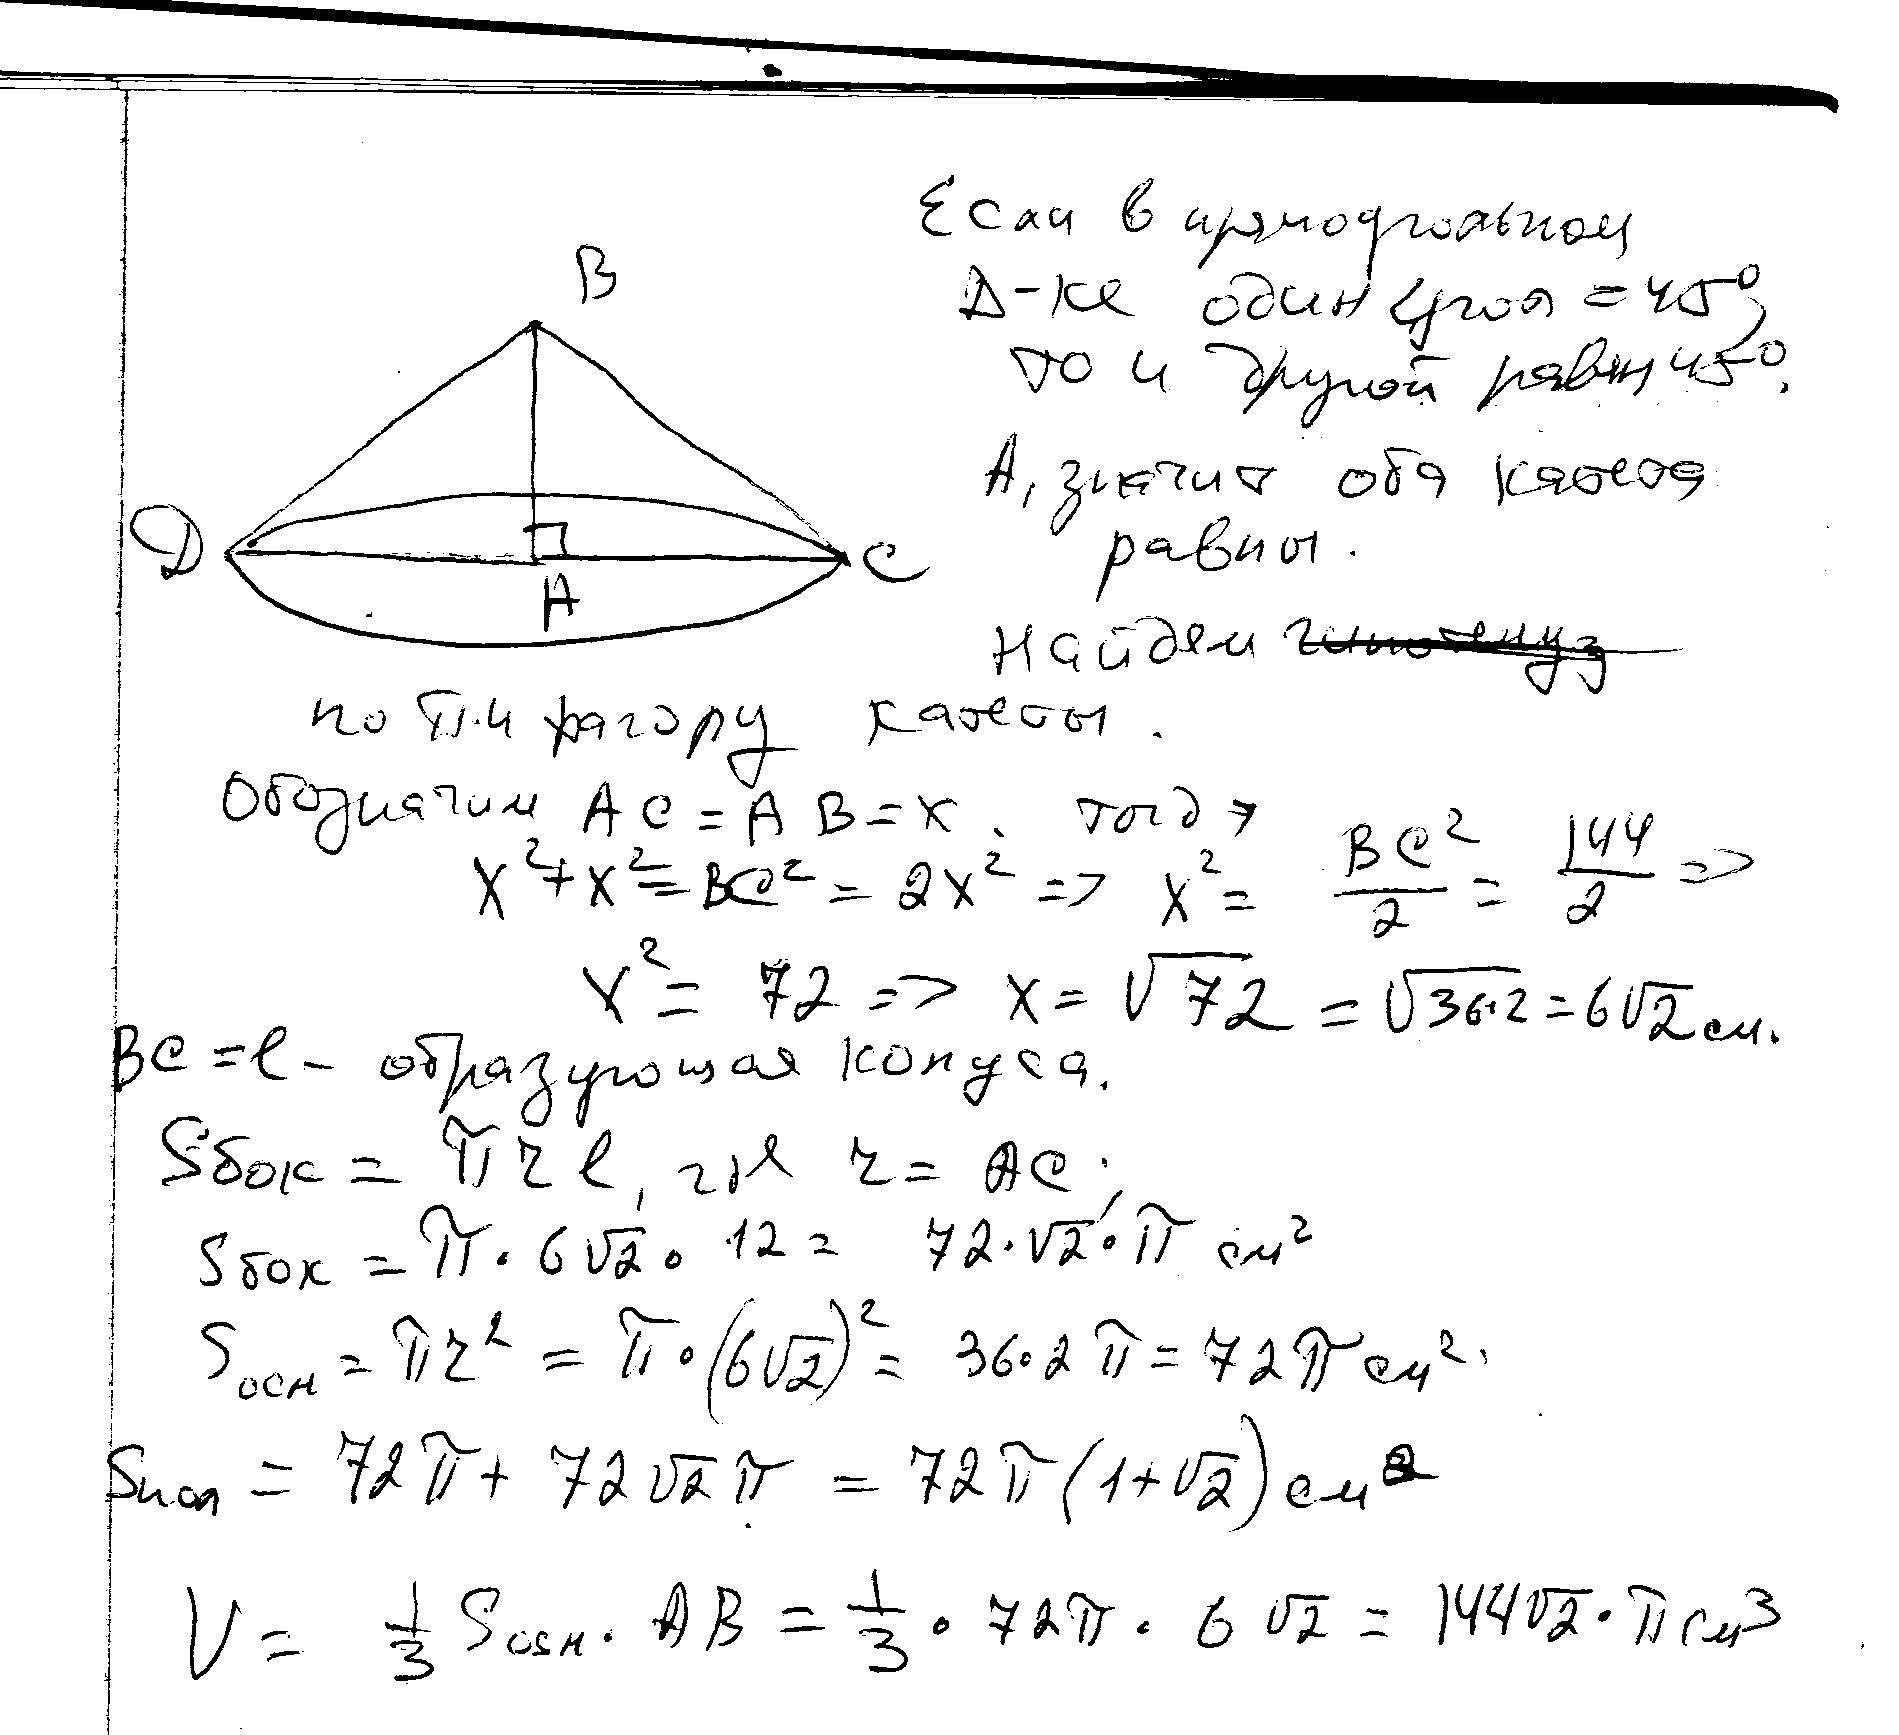 Если в прямоугольном
Δ-ке один угол = 45°,
то и другой равен 45°.
А, значит оба катета
равны.
Найдем гипотенуз
по Пифагору катеты.
Обозначим AC = AB = x. тогда
x² + x² = BC² = 2x² => x² = BC²/2 = 144/2 =>
x² = 72 => x = √72 = √36·2 = 6√2 см.
BC = l - образующая конуса.
Sбок = π r l, где r = AC.
Sбок = π · 6√2 · 12 = 72·√2·π см²
Sосн = πr² = π·(6√2)² = 36·2π = 72π см².
Sпол = 72π + 72√2π = 72π(1+√2) см²
V = 1/3 Sосн · AB = 1/3 · 72π · 6√2 = 144√2·π см³
B
D
A
C